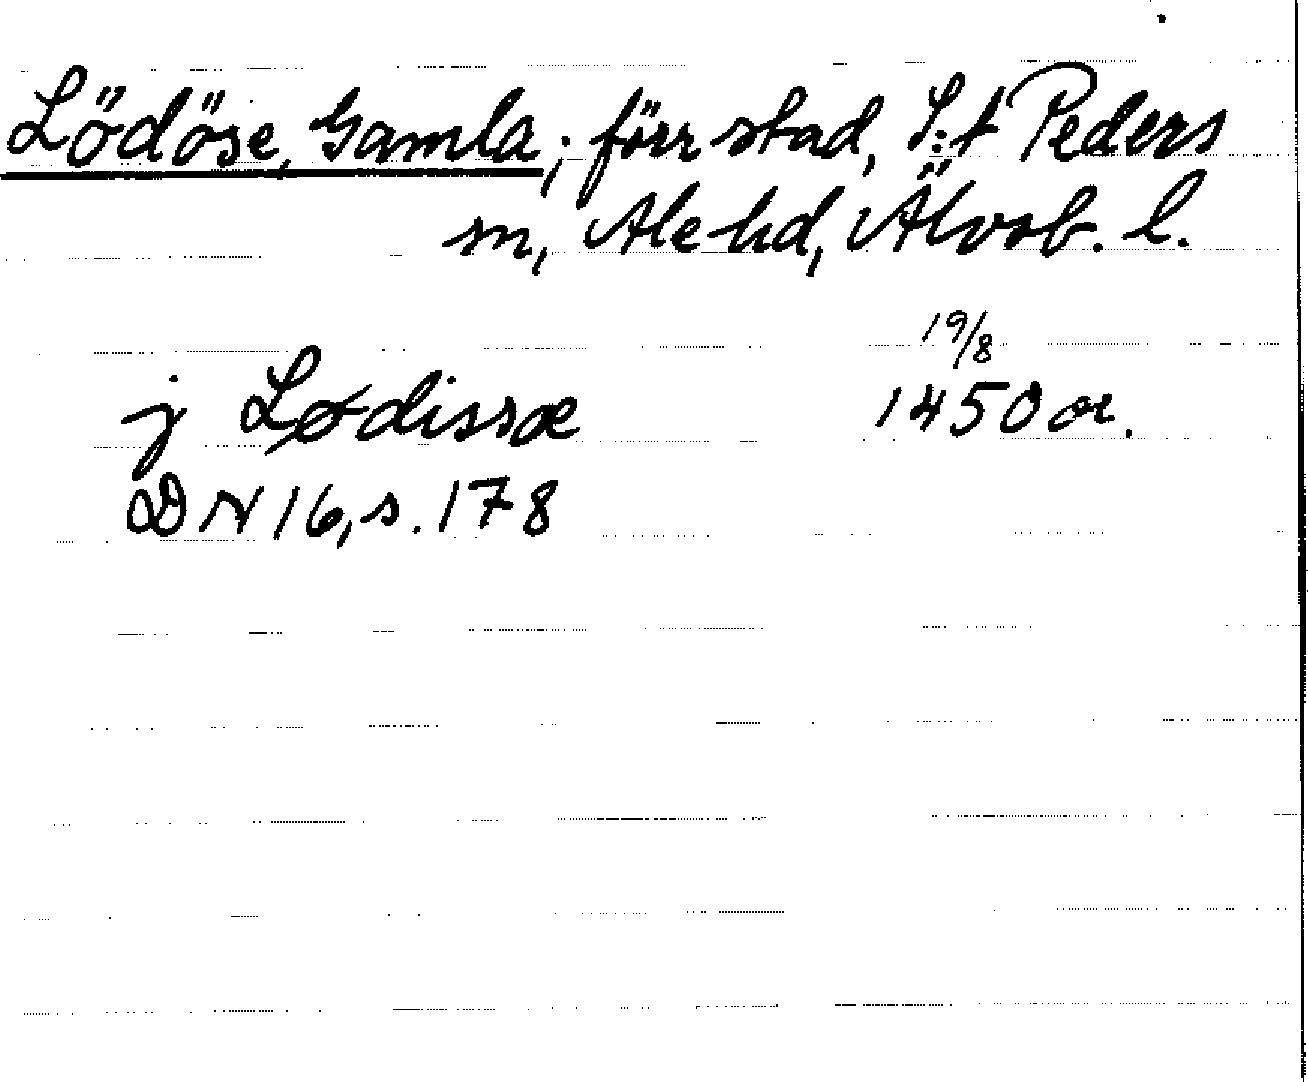 Lödöse, Gamla; förr stad, S:t Peders
sn, Ale hd, Älvsb. l.
j Lødissæ 19/8 1450 or.
DN 16, s. 178